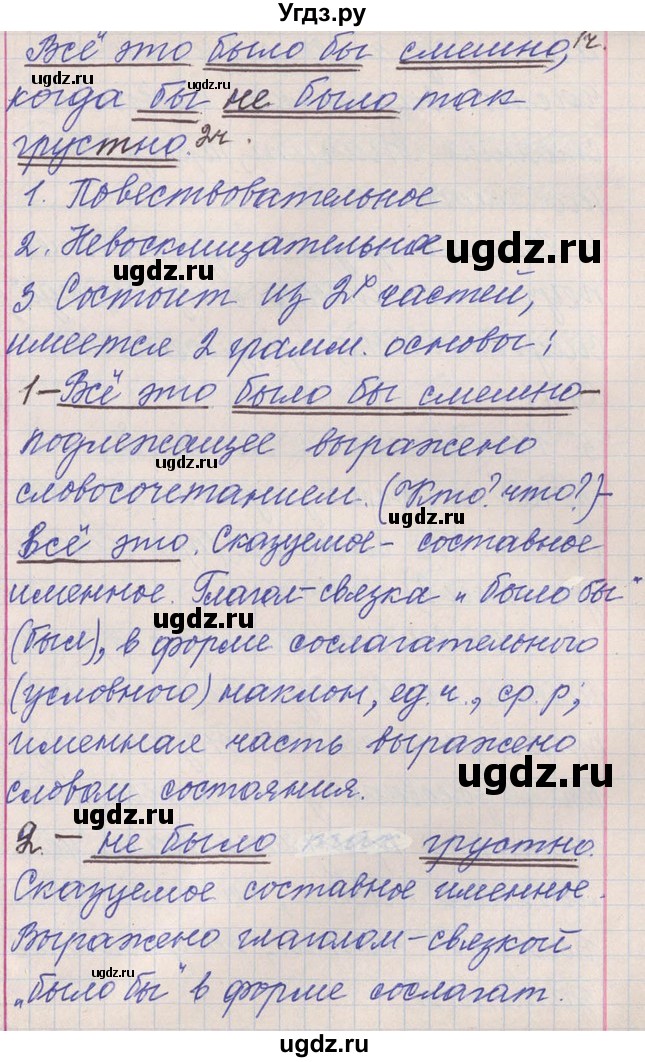 Угдз.ру
Всё это было бы смешно, 1ч.
когда бы не было так
грустно. 2ч.
1. Повествовательное
2. Невосклицательное
3. Состоит из 2х частей,
имеется 2 грамм. основы:
1 – Всё это было бы смешно –
подлежащее выражено
словосочетанием. (Кто? что?) –
всё это. Сказуемое – составное
именное. Глагол-связка „было бы“
(был), в форме сослагательного
(условного) наклон, ед.ч., ср.р;
именная часть выражено
словом состояния.
2. – не было так грустно.
Сказуемое составное именное.
Выражено глаголом-связкой
„было бы“ в форме сослагат.
ugdz.ru